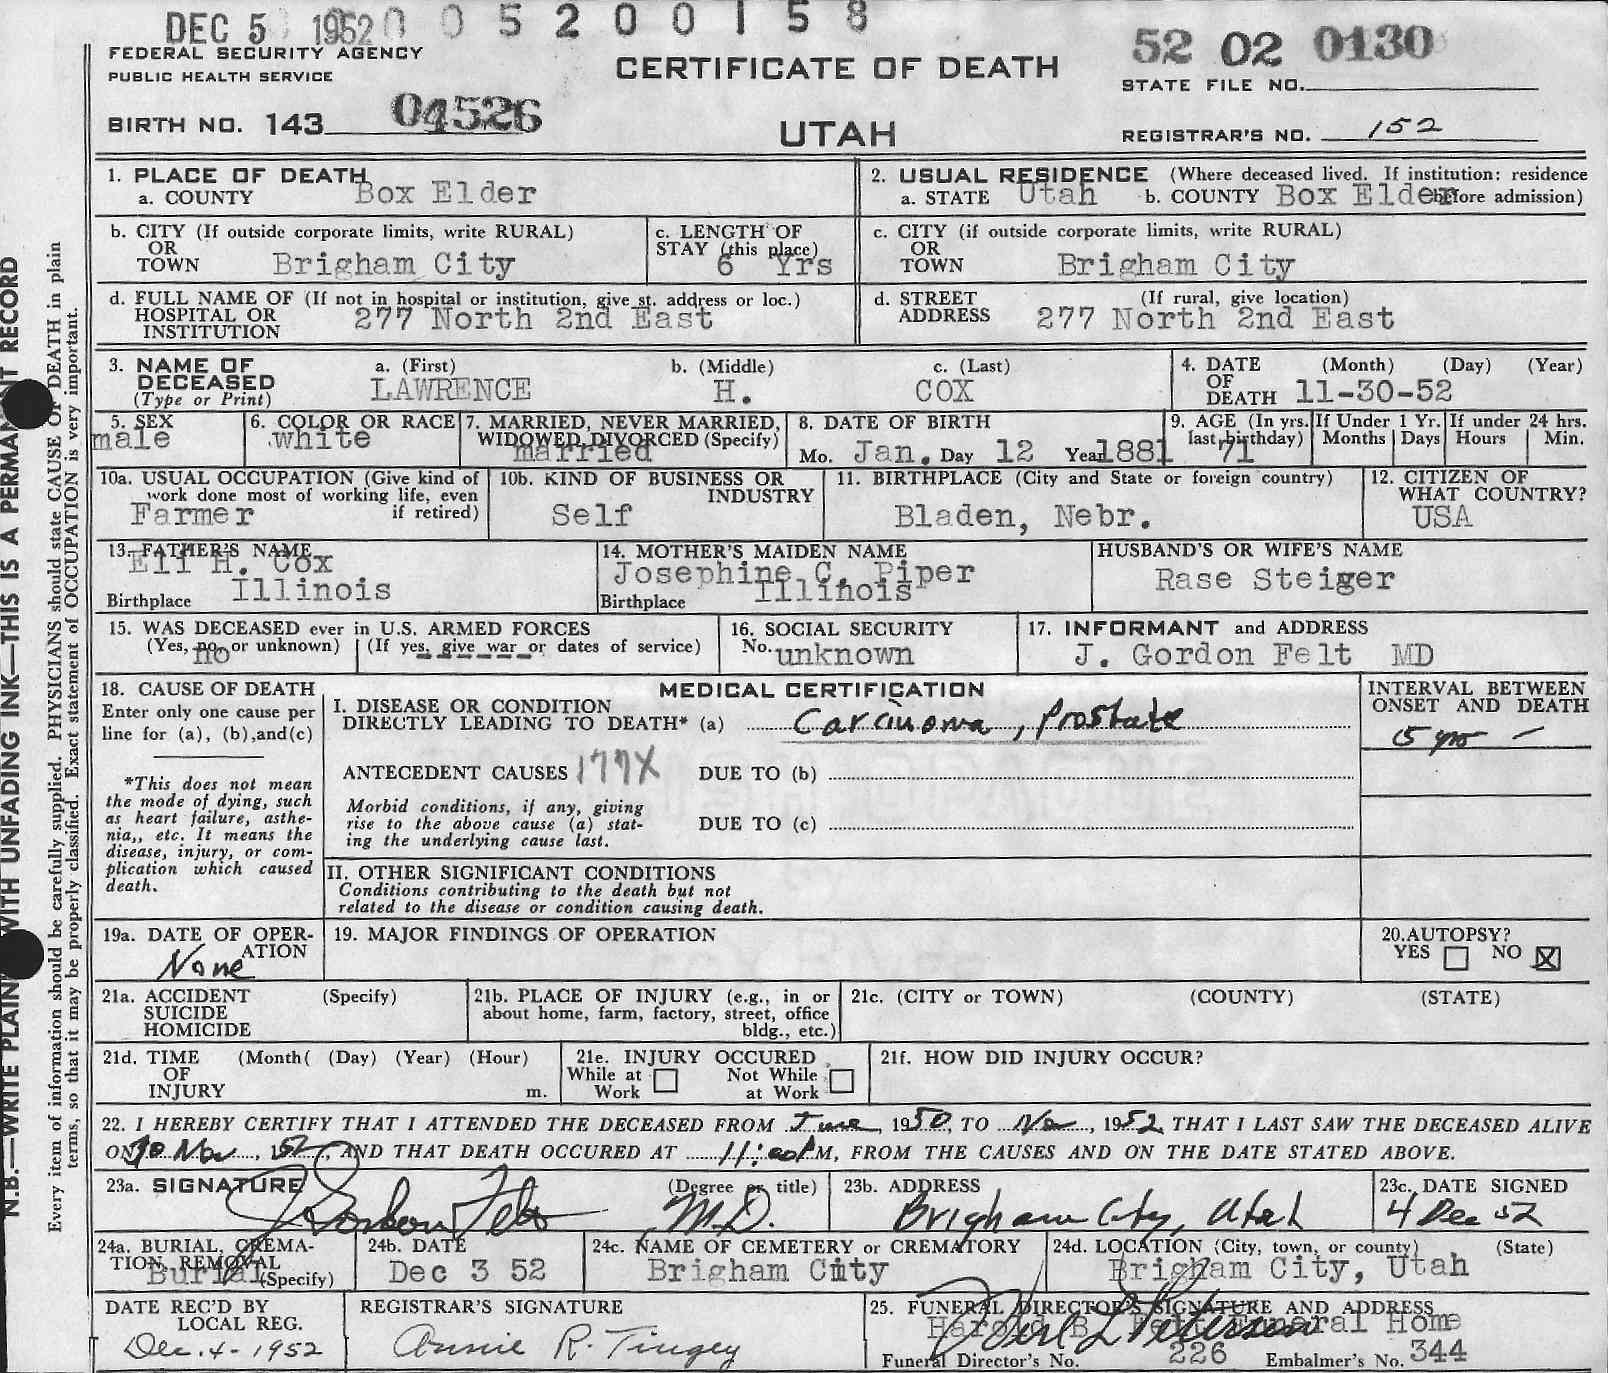 DEC 5 1952 0 0 5 2 0 0 1 5 8
FEDERAL SECURITY AGENCY
PUBLIC HEALTH SERVICE
CERTIFICATE OF DEATH
UTAH
52 02 0130
STATE FILE NO.
BIRTH NO. 143 04526
REGISTRAR'S NO. 152
1. PLACE OF DEATH
a. COUNTY Box Elder
2. USUAL RESIDENCE (Where deceased lived. If institution: residence before admission)
a. STATE Utah b. COUNTY Box Elder
b. CITY (If outside corporate limits, write RURAL)
OR
TOWN Brigham City
c. LENGTH OF
STAY (this place)
6 Yrs
c. CITY (if outside corporate limits, write RURAL)
OR
TOWN Brigham City
d. FULL NAME OF (If not in hospital or institution, give st. address or loc.)
HOSPITAL OR
INSTITUTION 277 North 2nd East
d. STREET (If rural, give location)
ADDRESS 277 North 2nd East
3. NAME OF
DECEASED
(Type or Print)
a. (First) b. (Middle) c. (Last)
LAWRENCE H. COX
4. DATE (Month) (Day) (Year)
OF
DEATH 11-30-52
5. SEX
male
6. COLOR OR RACE
white
7. MARRIED, NEVER MARRIED,
WIDOWED, DIVORCED (Specify)
married
8. DATE OF BIRTH
Mo. Jan. Day 12 Year 1881
9. AGE (In yrs. last birthday)
71
If Under 1 Yr.
Months Days
If under 24 hrs.
Hours Min.
10a. USUAL OCCUPATION (Give kind of
work done most of working life, even
if retired)
Farmer
10b. KIND OF BUSINESS OR
INDUSTRY
Self
11. BIRTHPLACE (City and State or foreign country)
Bladen, Nebr.
12. CITIZEN OF
WHAT COUNTRY?
USA
13. FATHER'S NAME
Eli H. Cox
Birthplace Illinois
14. MOTHER'S MAIDEN NAME
Josephine C. Piper
Birthplace Illinois
HUSBAND'S OR WIFE'S NAME
Rase Steiger
15. WAS DECEASED ever in U.S. ARMED FORCES
(Yes, no, or unknown) (If yes, give war or dates of service)
no
16. SOCIAL SECURITY
No. unknown
17. INFORMANT and ADDRESS
J. Gordon Felt MD
18. CAUSE OF DEATH
Enter only one cause per
line for (a), (b),and(c)
*This does not mean
the mode of dying, such
as heart failure, asthe-
nia,, etc. It means the
disease, injury, or com-
plication which caused
death.
MEDICAL CERTIFICATION
I. DISEASE OR CONDITION
DIRECTLY LEADING TO DEATH* (a) Carcinoma, prostate
ANTECEDENT CAUSES 177X DUE TO (b)
Morbid conditions, if any, giving
rise to the above cause (a) stat-
ing the underlying cause last.
DUE TO (c)
II. OTHER SIGNIFICANT CONDITIONS
Conditions contributing to the death but not
related to the disease or condition causing death.
INTERVAL BETWEEN
ONSET AND DEATH
5 yrs -
19a. DATE OF OPER-
ATION
None
19. MAJOR FINDINGS OF OPERATION
20.AUTOPSY?
YES NO
21a. ACCIDENT (Specify)
SUICIDE
HOMICIDE
21b. PLACE OF INJURY (e.g., in or
about home, farm, factory, street, office
bldg., etc.)
21c. (CITY or TOWN) (COUNTY) (STATE)
21d. TIME (Month( (Day) (Year) (Hour)
OF
INJURY m.
21e. INJURY OCCURED
While at Work Not While at Work
21f. HOW DID INJURY OCCUR?
22. I HEREBY CERTIFY THAT I ATTENDED THE DECEASED FROM June, 1950, TO Nov, 1952, THAT I LAST SAW THE DECEASED ALIVE
ON 30 Nov, 1952, AND THAT DEATH OCCURED AT 11:00PM, FROM THE CAUSES AND ON THE DATE STATED ABOVE.
23a. SIGNATURE (Degree or title)
J Gordon Felt M.D.
23b. ADDRESS
Brigham City, Utah
23c. DATE SIGNED
4 Dec 52
24a. BURIAL, CREMA-
TION, REMOVAL
(Specify)
Burial
24b. DATE
Dec 3 52
24c. NAME OF CEMETERY or CREMATORY
Brigham City
24d. LOCATION (City, town, or county) (State)
Brigham City, Utah
DATE REC'D BY
LOCAL REG.
Dec. 4 - 1952
REGISTRAR'S SIGNATURE
Annie R. Tingey
25. FUNERAL DIRECTOR'S SIGNATURE AND ADDRESS
Harold B. Felt Funeral Home
Funeral Director's No. 226 Embalmer's No. 344
N.B.—WRITE PLAIN WITH UNFADING INK—THIS IS A PERMANENT RECORD
Every item of information should be carefully supplied. PHYSICIANS should state CAUSE OF DEATH in plain
terms, so that it may be properly classified. Exact statement of OCCUPATION is very important.